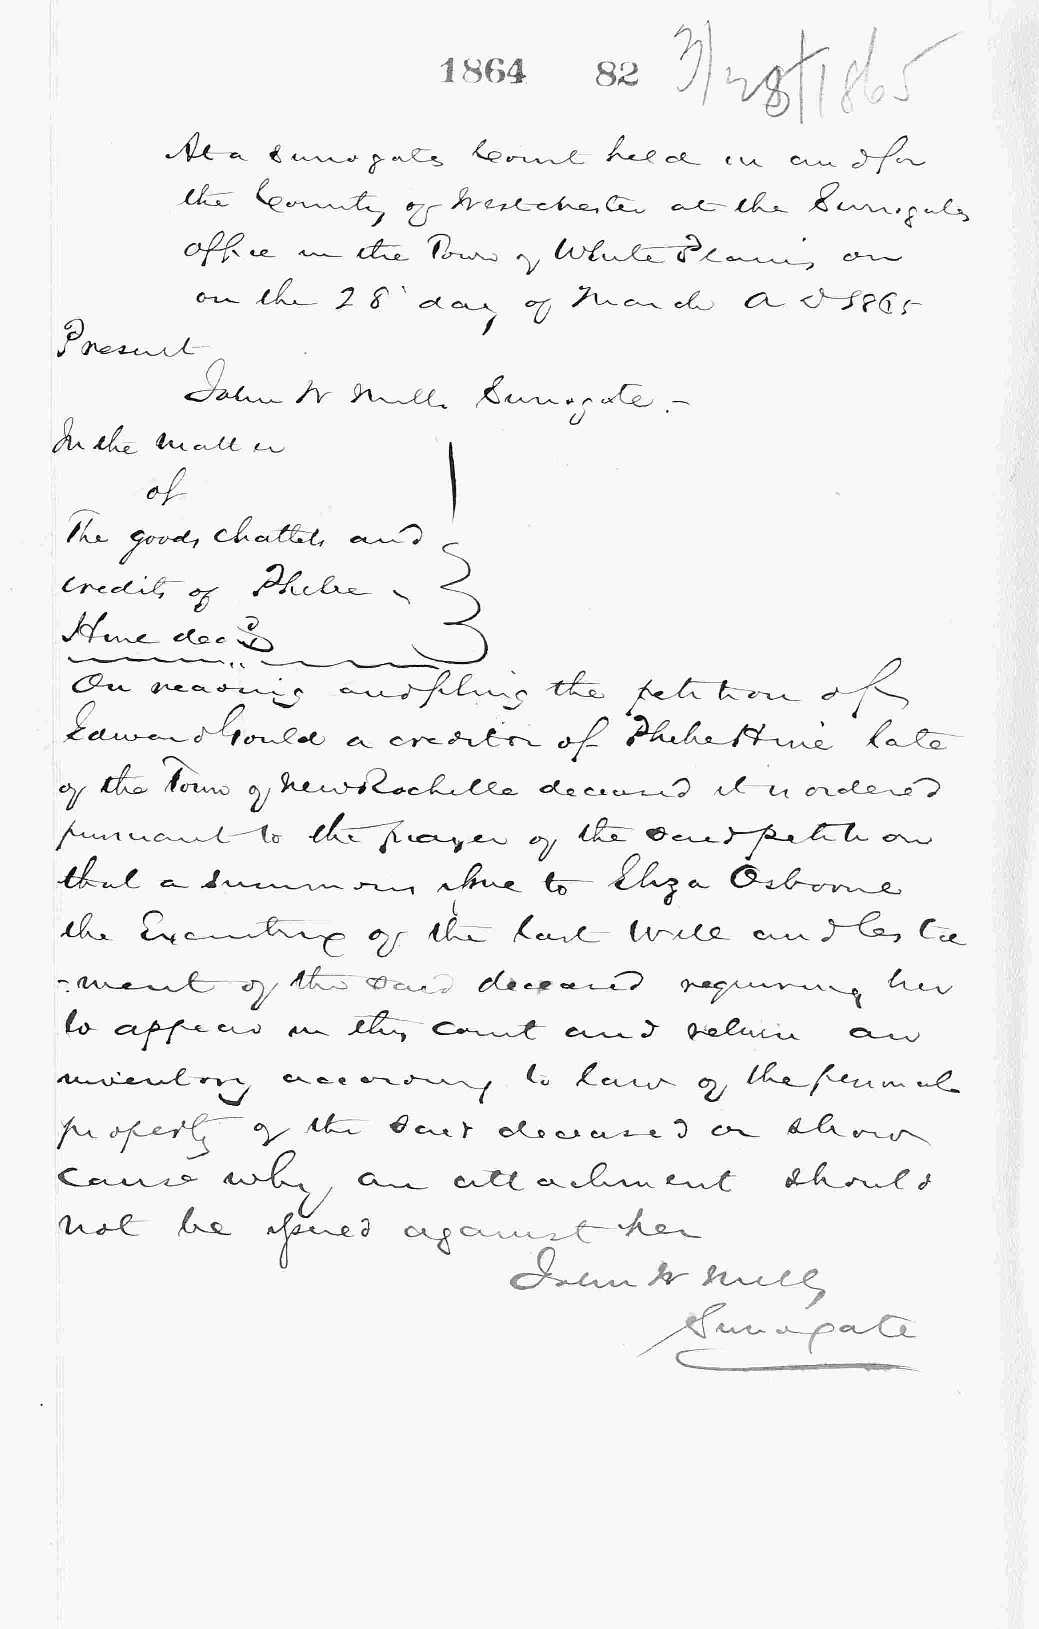 1864 82 3/28/1865
At a Surrogates Court held in and for
the County of Westchester at the Surrogates
office in the Town of White Plains on
on the 28 day of March A D 1865
Present
John W Mills Surrogate.-
In the matter
of
The goods chattels and
credits of Phebe
Hine decd
On reading and filing the petition of
Edward Gould a creditor of Phebe Hine late
of the Town of New Rochelle deceased it is ordered
pursuant to the prayer of the said petition
that a Summons issue to Eliza Osborne
the Executrix of the last Will and testa
-ment of the said deceased requiring her
to appear in this court and return an
inventory according to law of the personal
property of the said deceased or show
cause why an attachment should
not be issued against her
John W Mills
Surrogate